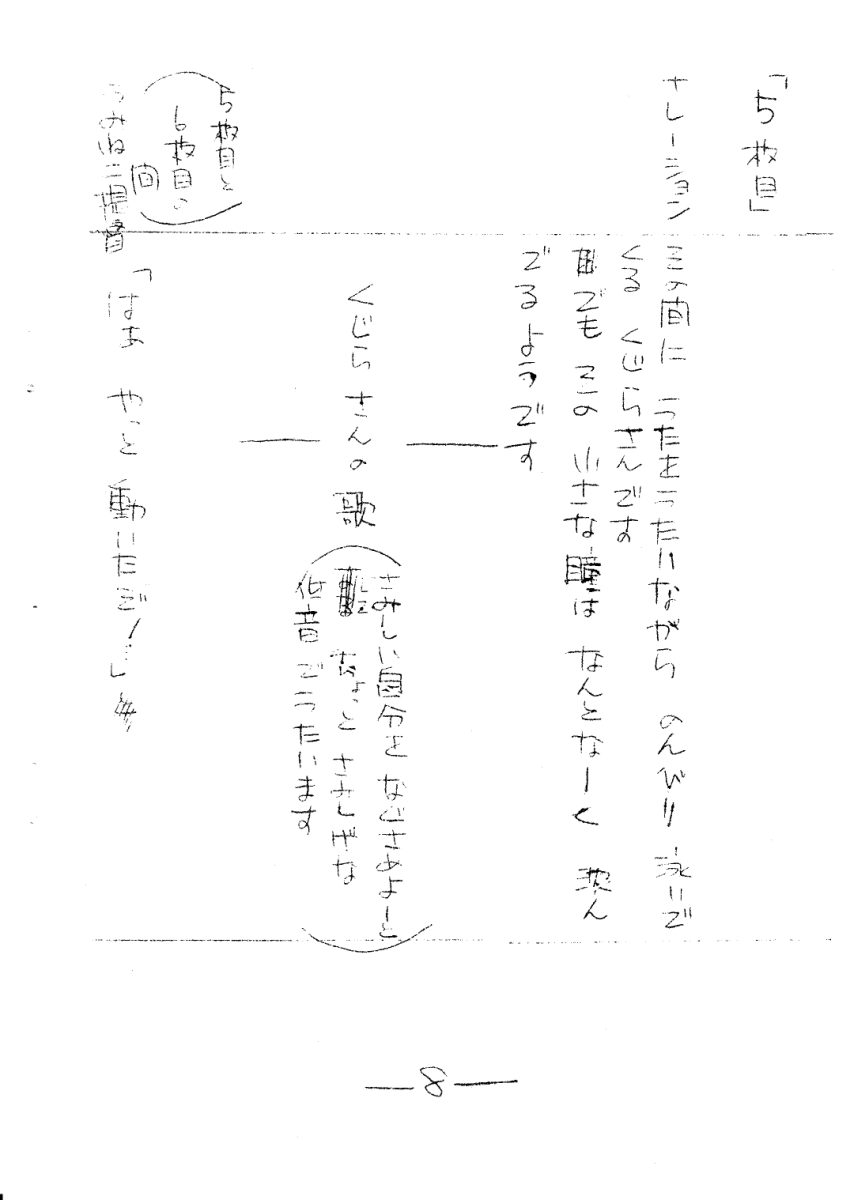 「5枚目」
ナレーション
この間に うたをうたいながら のんびり 泳いで
くる くじらさんです
でも この 小さな瞳は なんとなーく 淋ん
でるようです
くじらさんの 歌
さみしい自分を なぐさめよーと
ちょっと さみしげな
低音でうたいます
5枚目と
6枚目の
間
「はあ やっと 動いたぞ/…」
—8—